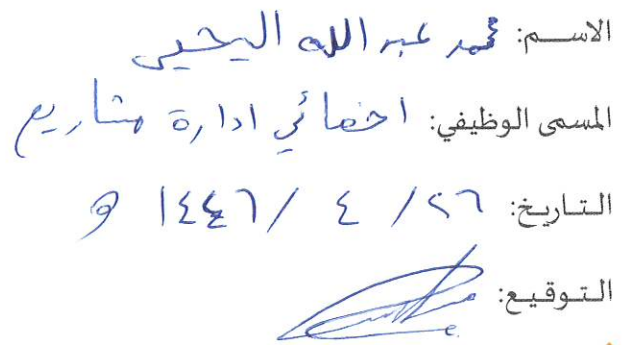 الاسم: محمد عبدالله اليحيى
المسمى الوظيفي: اخصائي ادارة مشاريع
التاريخ: ٢٦/ ٤ /١٤٤٦ ه
التوقيع: